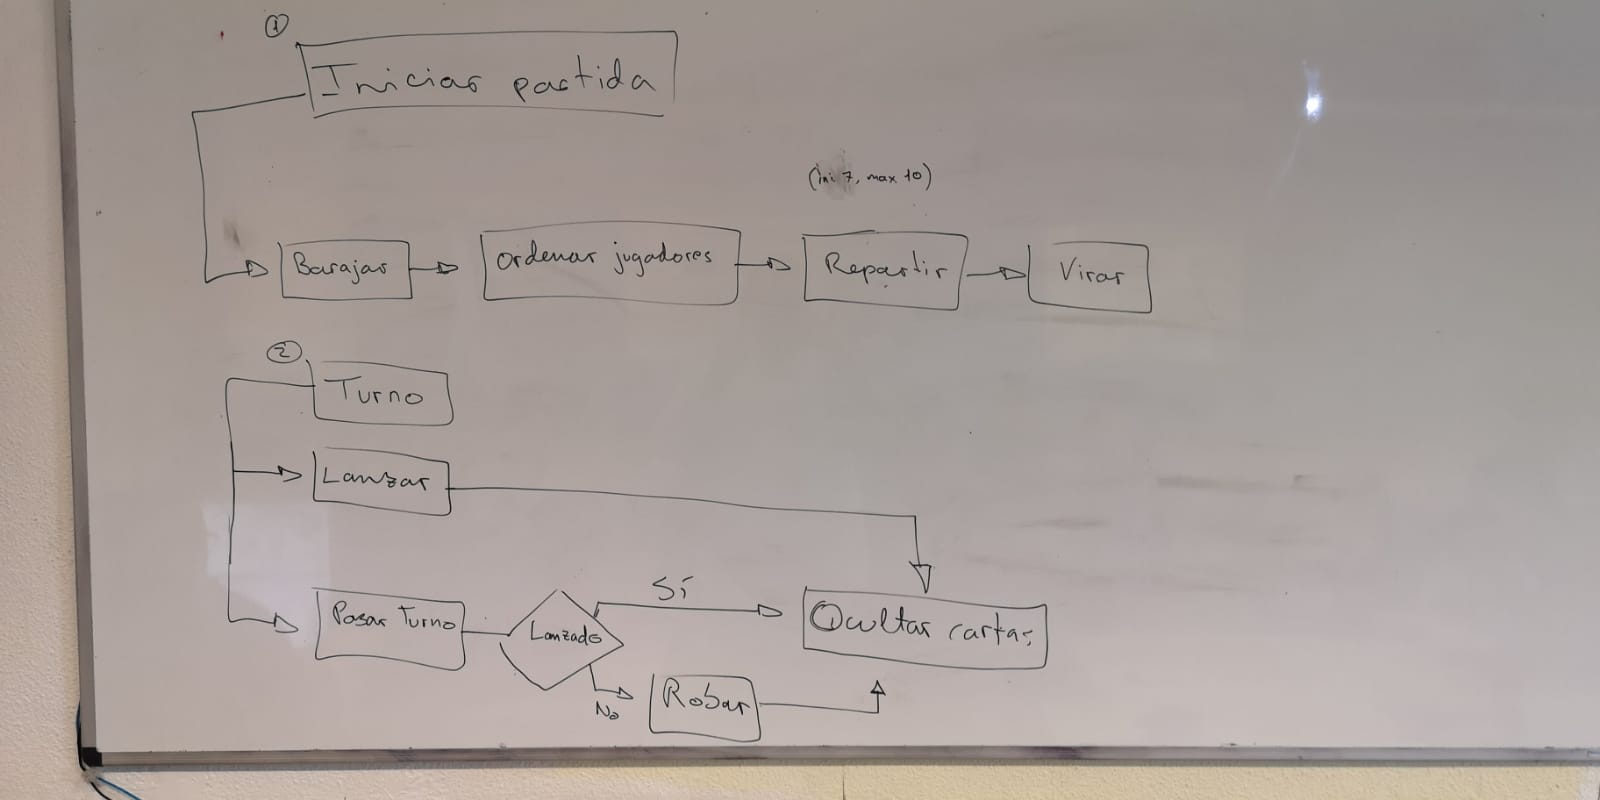 1
Iniciar partida
(ini 7, max 10)
Barajar
Ordenar jugadores
Repartir
Virar
2
Turno
Lanzar
Sí
Pasar Turno
Lanzado
Ocultar cartas
No
Robar